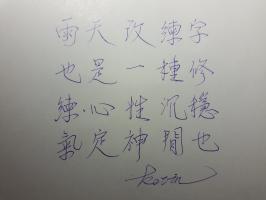 雨天改練字
也是一種修
練心性沉穩
氣定神閒也